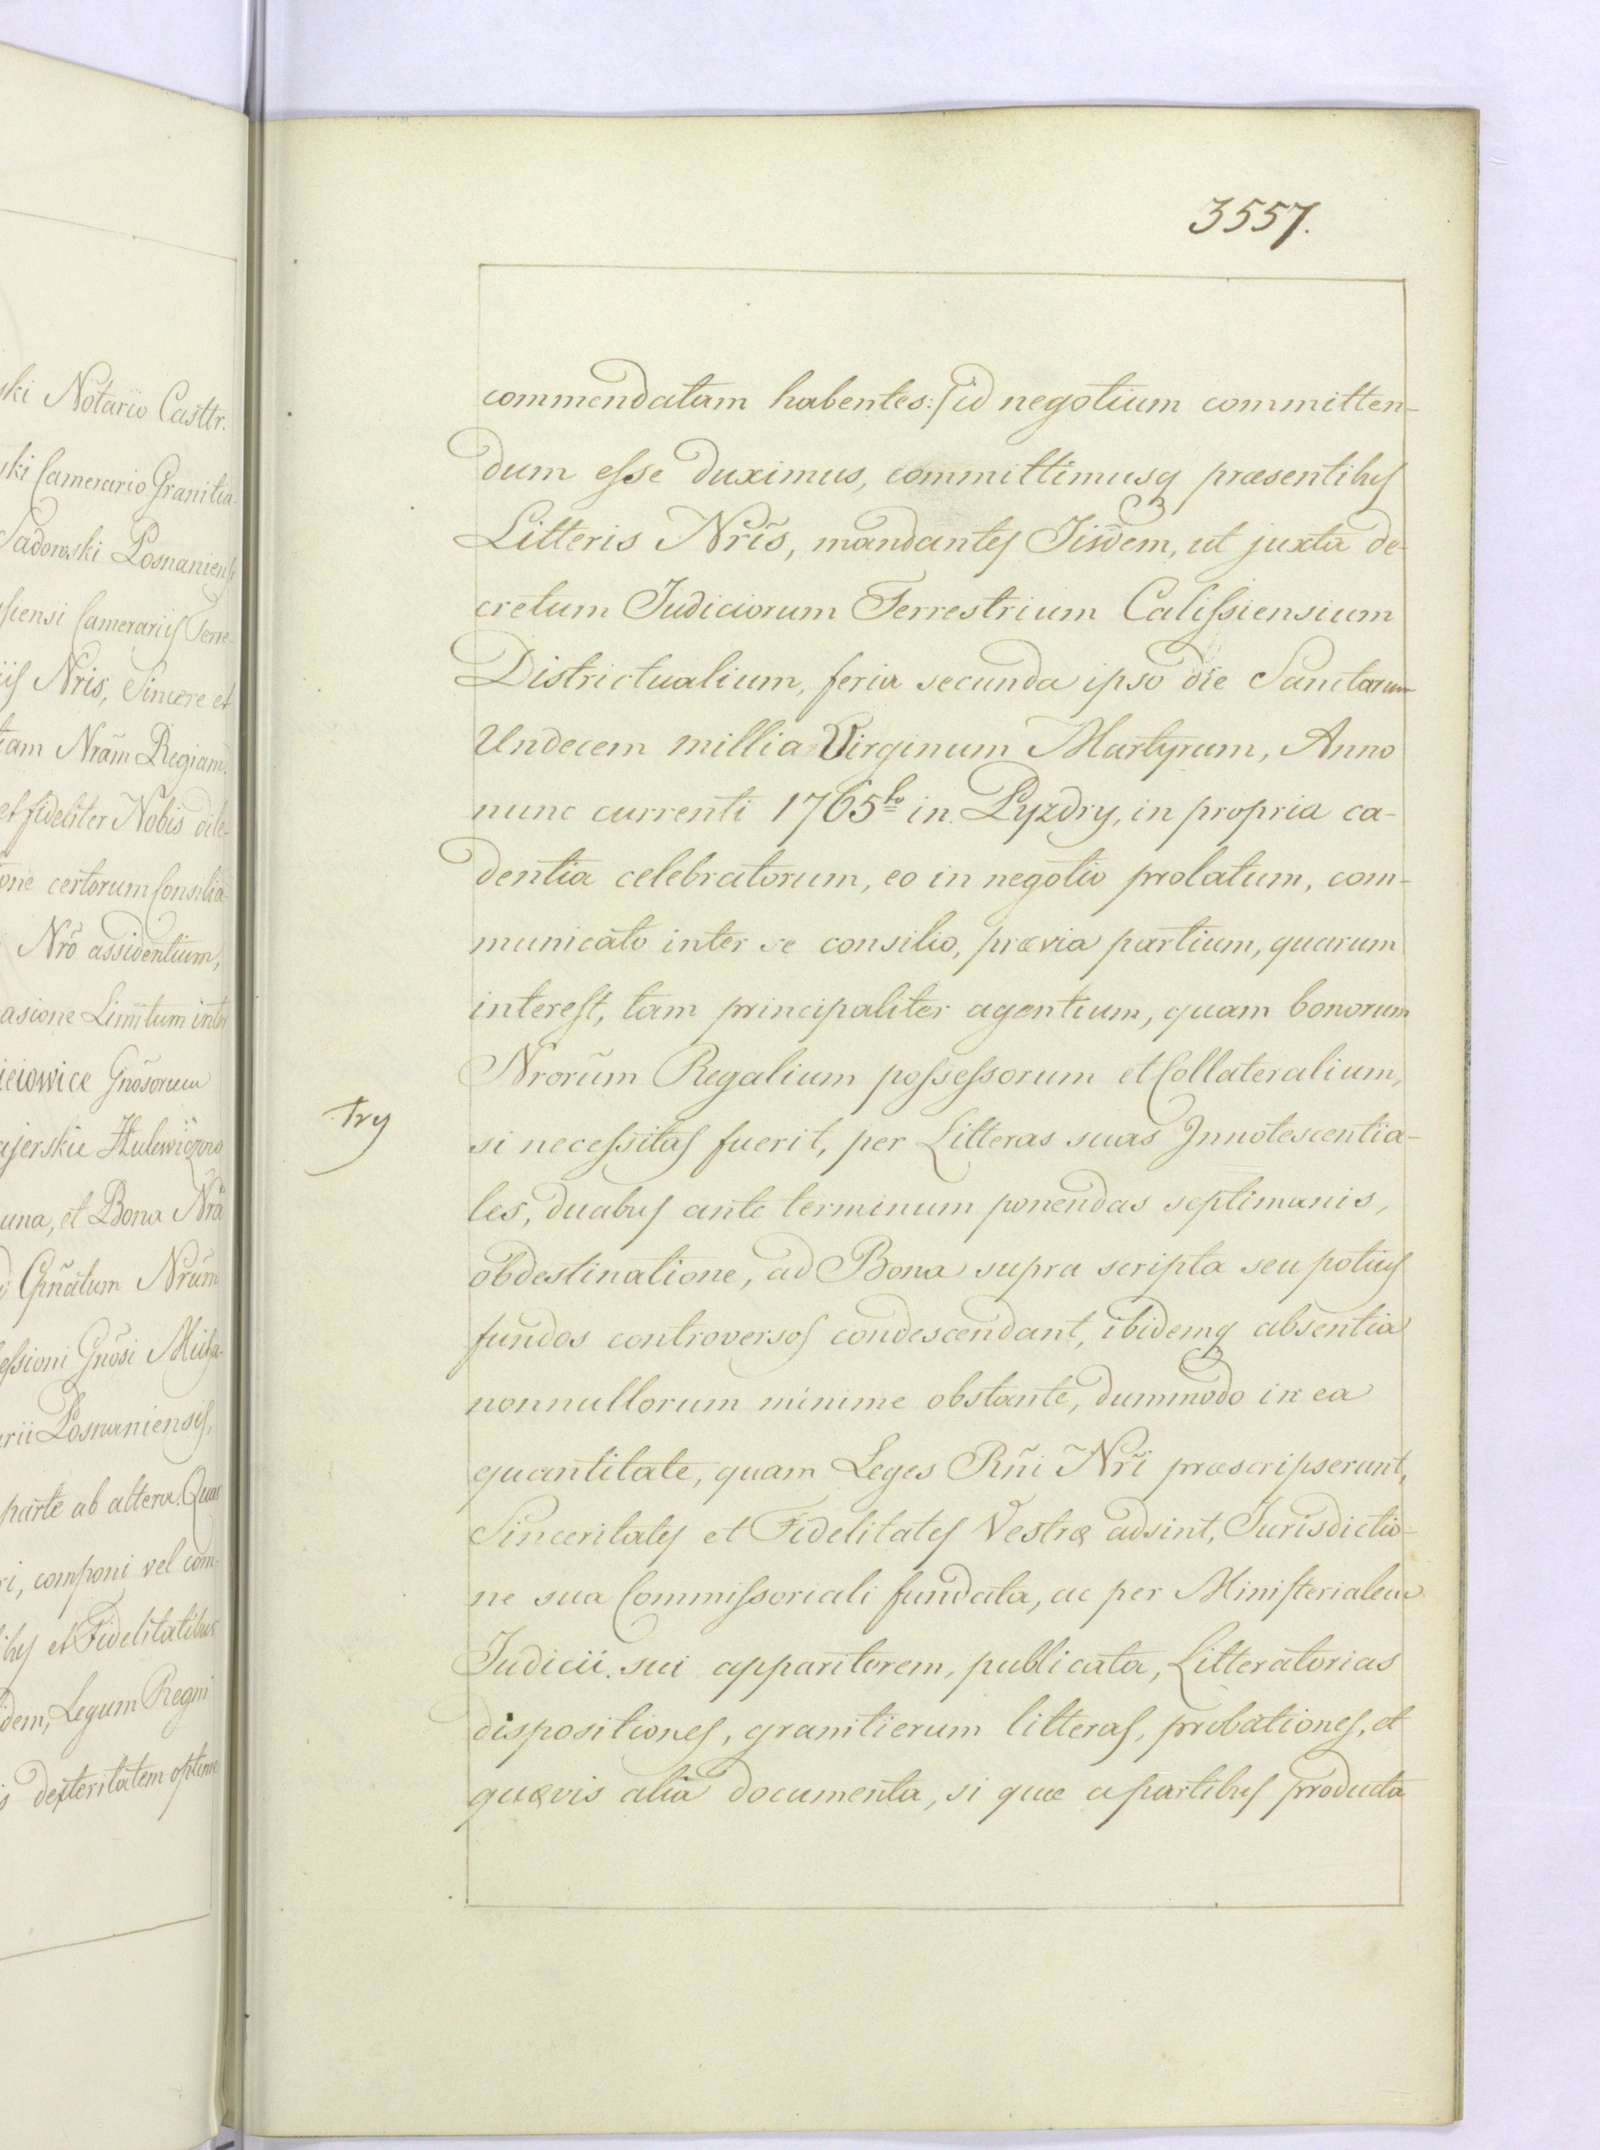 3557.
commendatam habentes:/ id negotium committen-
dum esse duximus, committimusq præsentibus
Litteris Nr̃is, mandantes Iisdem, ut juxta de-
cretum Judiciorum Terrestrium Calissiensium
Districtualium, feria secunda ipso die Sanctarum
Undecem millia Virginum Martyrum, Anno
nunc currenti 1765to in Pyzdry, in propria ca-
dentia celebratorum, eo in negotio prolatum, com-
municato inter se consilio, prævia partium, quarum
interest, tam principaliter agentium, quam bonorum
Nrorum Regalium possessorum et Collateralium,
try
si necessitas fuerit, per Litteras suas Innotescentia-
les, duabus ante terminum ponendas septimanis,
obdestinatione, ad Bona supra scripta seu potius
fundos controversos condescendant, ibidemq absentia
nonnullorum minime obstante, dummodo in ea
quantitate, quam Leges Rñi Nr̃i præscripserunt,
Sinceritates et Fidelitates Vestræ adsint, Jurisdictio-
ne sua Commissoriali fundata, ac per Ministerialem
Judicii sui apparitorem, publicata, Litteratorias
dispositiones, granitierum litteras, probationes, et
quævis alia documenta, si quæ a partibus producta
ski Notario Casttr.
ski Camerario Granitia-
Sadowski Posnaniensi
siensi Camerariis Terre-
iis Nris, Sincere et
tam Nrãm Regiam.
et fideliter Nobis dile-
one certorum Consilia-
Nrõ assidentium,
asione Limitum inter
ieiowice Gnõsorum
ajerskie Hulewiczono
una, et Bona Nrã
Gñatum Nrũm
essioni Gnõsi Micha-
rii Posnaniensis,
parte ab altera. Quas
ri, componi vel com-
ibus et Fidelitatibus
idem, Legum Regni
s dexteritatem optime